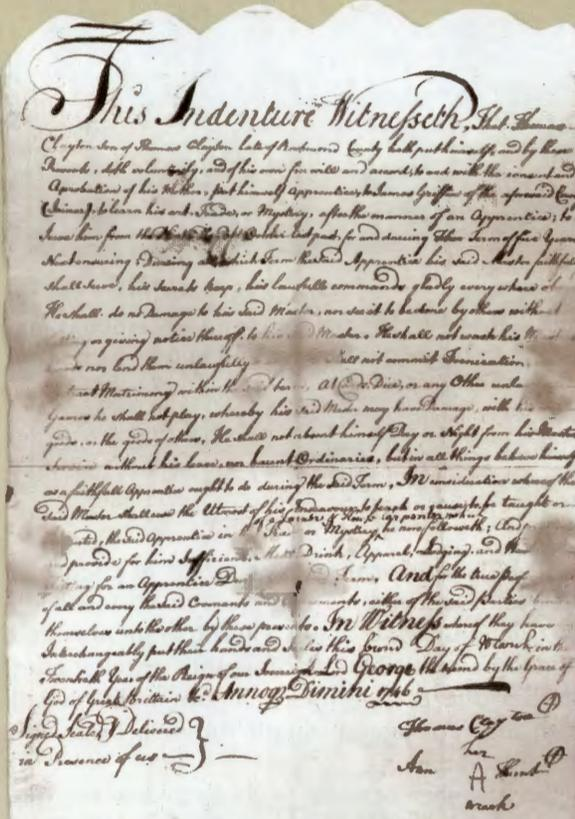 This Indenture Witnesseth, That Thomas
Clayton Son of Thomas Clayton late of Richmond County hath put himself, and by these
Presents, doth voluntarily, and of his own free will and accord, to and with the consent and
Aprobation of his Mother, put himself Apprentice, to James Griffin of the aforesaid
(Joiner), to learn his art, Trade, or Mystery, after the manner of an Apprentice; to
Serve him from the last past, for and dureing Ther Term of five Years
Next ensuing; Dureing all which Term the Said Apprentice his Said Master faithfull
Shall Serve, his Secrets keep, his lawfulls commands gladly every where
He shall do no Damage to his Said Master, nor see it to be done by others without
or giving notice thereof to Master. He shall not wast his
nor lend them unlawfully not commit Fornication
Matrimony within the term. At Dice, or any Other
Games he shall not play, whereby his Said Master may have Damage, with
goods, or the goods of others, He shall not absent himself Day or Night from his Masters
Service without his leave, nor haunt Ordinaries, but in all things behave himself
as a faithfull Apprentice ought to do during the Said Term, In consideration whereof the
Said Master shall use the Utmost of his Endeavour, to teach or cause to be taught or
of a Joiner & House carpenter which
the Said Apprentice in Trade or Mystery, he now followeth; And
provide for him Sufficient Drink, Apparel, Lodging, and
for an Apprentice Term, And for the true
of all and every the Said Covenants and either of the Said Parties
themselves unto the other by these presents. In Witness whereof they have
Interchangeably put their hands and this Day of March in the
Twentieth Year of the Reign of our Lord George the by the Grace of
God of Great Brittain &c. Annoq Dimini 1746
Signed Sealed & Delivered
in Presence of us
Thomas Clayton
her
Ann A
mark